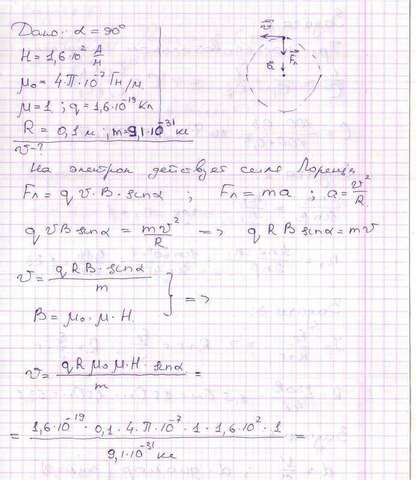 Дано: α = 90°
H = 1,6·10² А/м
μ₀ = 4·π·10⁻⁷ Гн/м.
μ = 1 ; q = 1,6·10¹⁹ Кл
R = 0,1 м ; m = 9,1·10⁻³¹ кг
v - ?
v
Fл
a
На электрон действует сила Лоренца
Fл = q v · B · sinα ; Fл = ma ; a = v²/R
q v B sinα = mv²/R => q R B sinα = mv
v = q R B · sinα / m
B = μ₀ · μ · H. } =>
v = q R μ₀ μ · H · sinα / m =
= 1,6·10⁻¹⁹ · 0,1 · 4·π·10⁻⁷ · 1 · 1,6·10² · 1 / 9,1·10⁻³¹ кг =